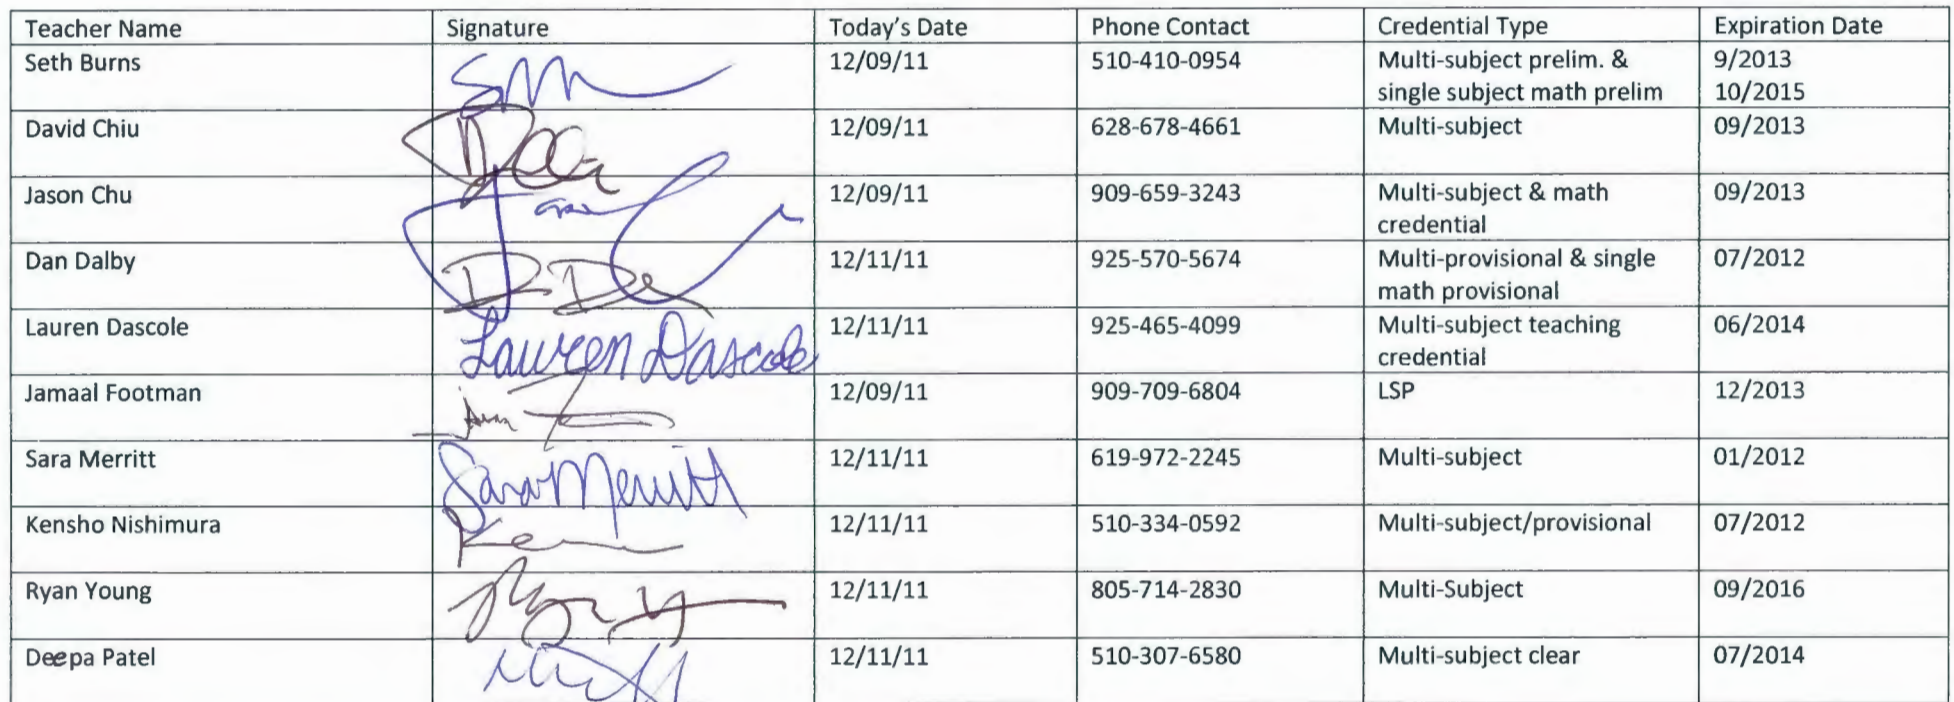 Teacher Name Signature Today's Date Phone Contact Credential Type Expiration Date
Seth Burns 12/09/11 510-410-0954 Multi-subject prelim. & 9/2013
single subject math prelim 10/2015
David Chiu 12/09/11 628-678-4661 Multi-subject 09/2013
Jason Chu 12/09/11 909-659-3243 Multi-subject & math 09/2013
credential
Dan Dalby 12/11/11 925-570-5674 Multi-provisional & single 07/2012
math provisional
Lauren Dascole Lauren Dascole 12/11/11 925-465-4099 Multi-subject teaching 06/2014
credential
Jamaal Footman 12/09/11 909-709-6804 LSP 12/2013
Sara Merritt Sara Merritt 12/11/11 619-972-2245 Multi-subject 01/2012
Kensho Nishimura 12/11/11 510-334-0592 Multi-subject/provisional 07/2012
Ryan Young 12/11/11 805-714-2830 Multi-Subject 09/2016
Deepa Patel 12/11/11 510-307-6580 Multi-subject clear 07/2014